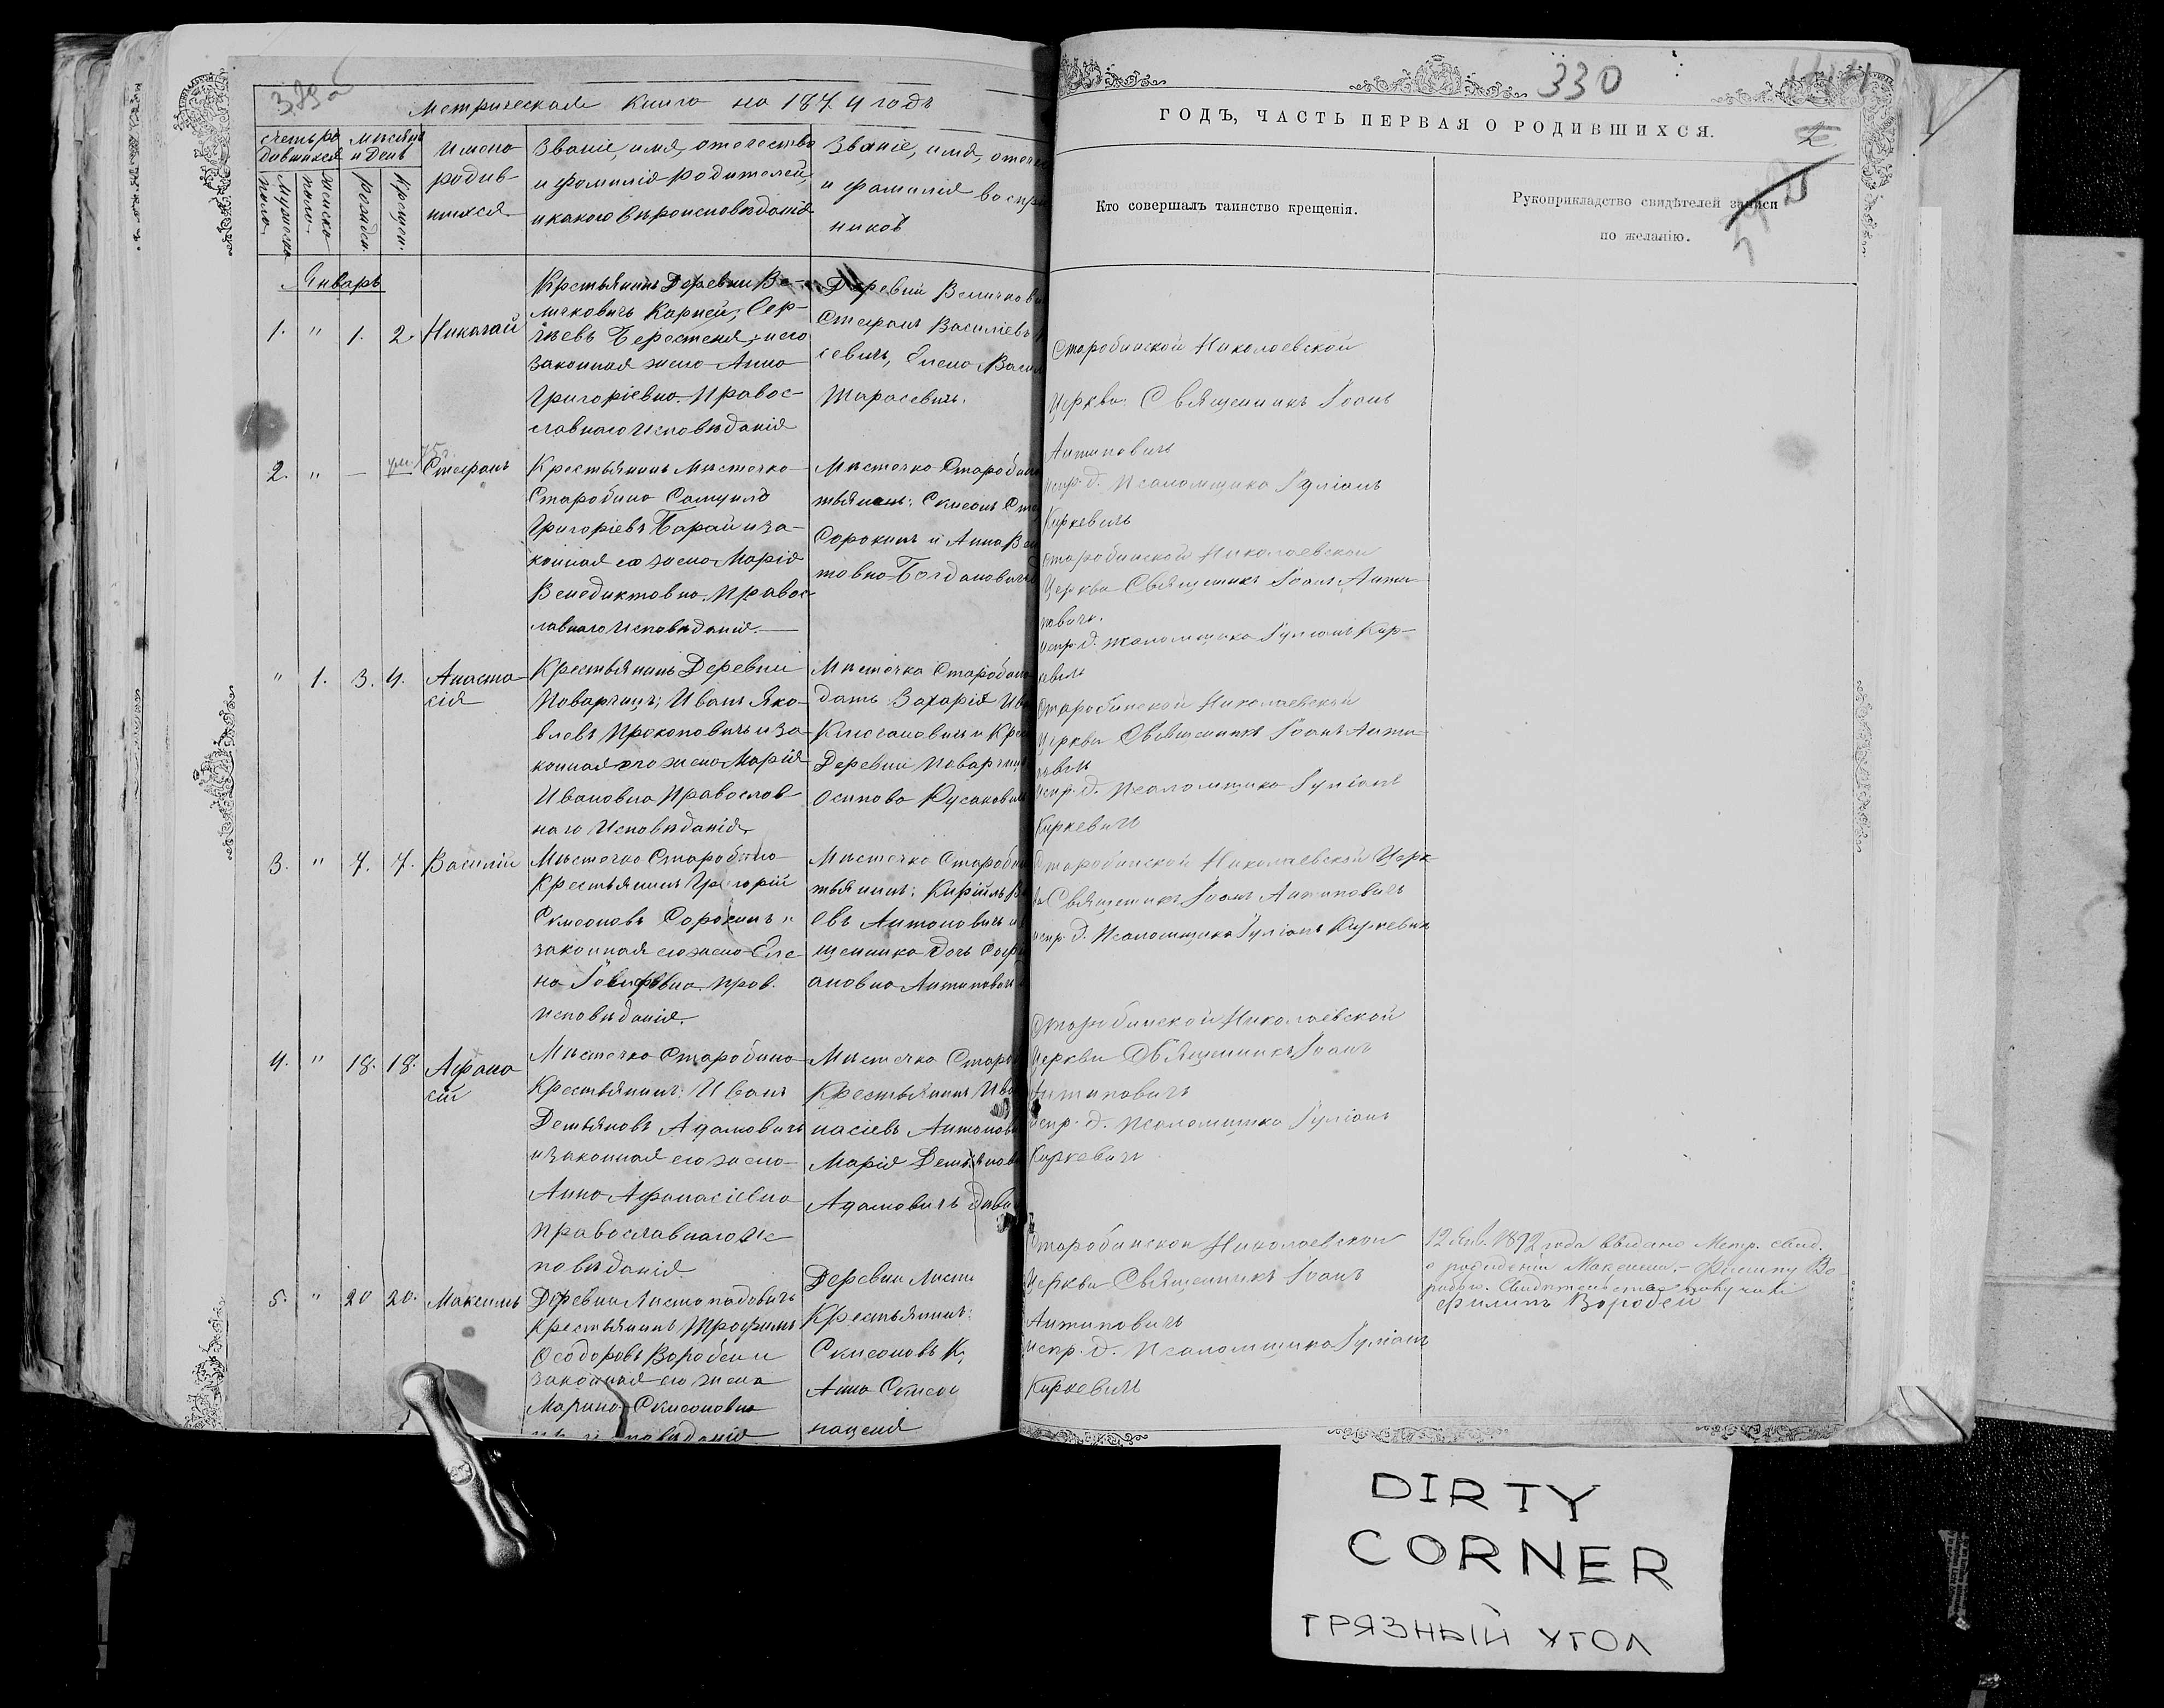 389а
Метрическая книга на 1874 годъ
счетъ ро
дившихся
мѣсяцъ
и день
Мужеска
пола.
женска
пола.
рожден.
крещен.
Имена
родив-
шихся
Званіе, имя, отечество
и фамилія родителей,
и какого вѣроисповѣданія
Званіе, имя, отече
и фамилія воспрі
никовъ
Январь
1. " 1. 2. Николай
Крестьянинъ Деревни Ве-
личковичъ Корней, Сер-
гѣевъ Берестеня, и его
законная жена Анна
Григоріевна. Правос-
славнаго Исповѣданія
Деревни Величкови
Стефанъ Василіевъ
севичъ, Елена Васил
Тарасевичъ.
2. " — Стефанъ
Крестьянинъ Мѣстечка
Старобина Самуилъ
Григоріевъ Барай и за-
конная его жена Марія
Венедиктовна. Правос-
лавнаго Исповѣданія.—
Мѣстечка Старобина
тьянинъ: Симеонъ Сте
Сорокинъ и Анна Вен
товна Богдановичъ
" 1. 3. 4. Анаста
сія
Крестьянинъ Деревни
Поварчицъ; Иванъ Яко-
влевъ Прокоповичъ и за-
конная его жена Марія
Ивановна Православ
наго Исповѣданія
Мѣстечка Старобина
датъ Захарія Ива
и Кре
Деревни Поварчиц
Осипова Русакович
3. " 7. 7. Василій
Мѣстечка Старобина
Крестьянинъ Григорій
Симеоновъ Сорокинъ и
законная его жена Еле
на Іосифовна. Прав.
Исповѣданія.
Мѣстечка Старобин
тьянинъ: Кирійлъ В
евъ Антоновичъ и
щенника дочь Софі
ановна Антипович
4. " 18. 18. Афана
сій
Мѣстечка Старобина
Крестьянинъ: Иванъ
Демьяновъ Адамовичъ
и законная его жена
Анна Афанасіевна
Православнаго Ис
повѣданія.
Мѣстечка Старо
Крестьянинъ Ива
насіевъ Антонови
Марія Демьянов
Адамовичъ дѣви
5. " 20 20. Максимъ
Деревни Листопадовичъ
Крестьянинъ Трофимъ
Ѳеодоровъ Воробей и
законная его жена
Марина Симеоновна
повѣданія
Деревни Листо
Крестьянинъ:
Симеоновъ К
Анна Симео
наценя
330
ГОДЪ, ЧАСТЬ ПЕРВАЯ О РОДИВШИХСЯ.
2
Кто совершалъ таинство крещенія.
Рукоприкладство свидѣтелей записи
по желанію.
Старобинской Николаевской
Церкви Священникъ Іоанъ
Антиповичъ
испр. д. Псаломщика Іуліанъ
Киркевичъ
Старобинской Николаевской
Церкви Священникъ Іоанъ Анти-
повичъ.
испр. д. Псаломщика Іуліанъ Кир-
кевичъ
Старобинской Николаевской
Церкви Священникъ Іоанъ Анти-
повичъ
испр. д. Псаломщика Іуліанъ
Киркевичъ
Старобинской Николаевской Церк
ви Священникъ Іоанъ Антиповичъ
испр. д. Псаломщика Іуліанъ Киркевичъ
Старобинской Николаевской
Церкви Священникъ Іоанъ
Антиповичъ
испр. д. Псаломщика Іуліанъ
Киркевичъ
Старобинской Николаевской
Церкви Священникъ Іоанъ
Антиповичъ
испр. д. Псаломщика Іуліанъ
Киркевичъ
12 Янв. 1892 года выдано Метр. свид.
о рожденіи Максима,— Филипу Во-
робью. Свидѣтельство получилъ
Филипъ Воробей
DIRTY
CORNER
ГРЯЗНЫЙ УГОЛ